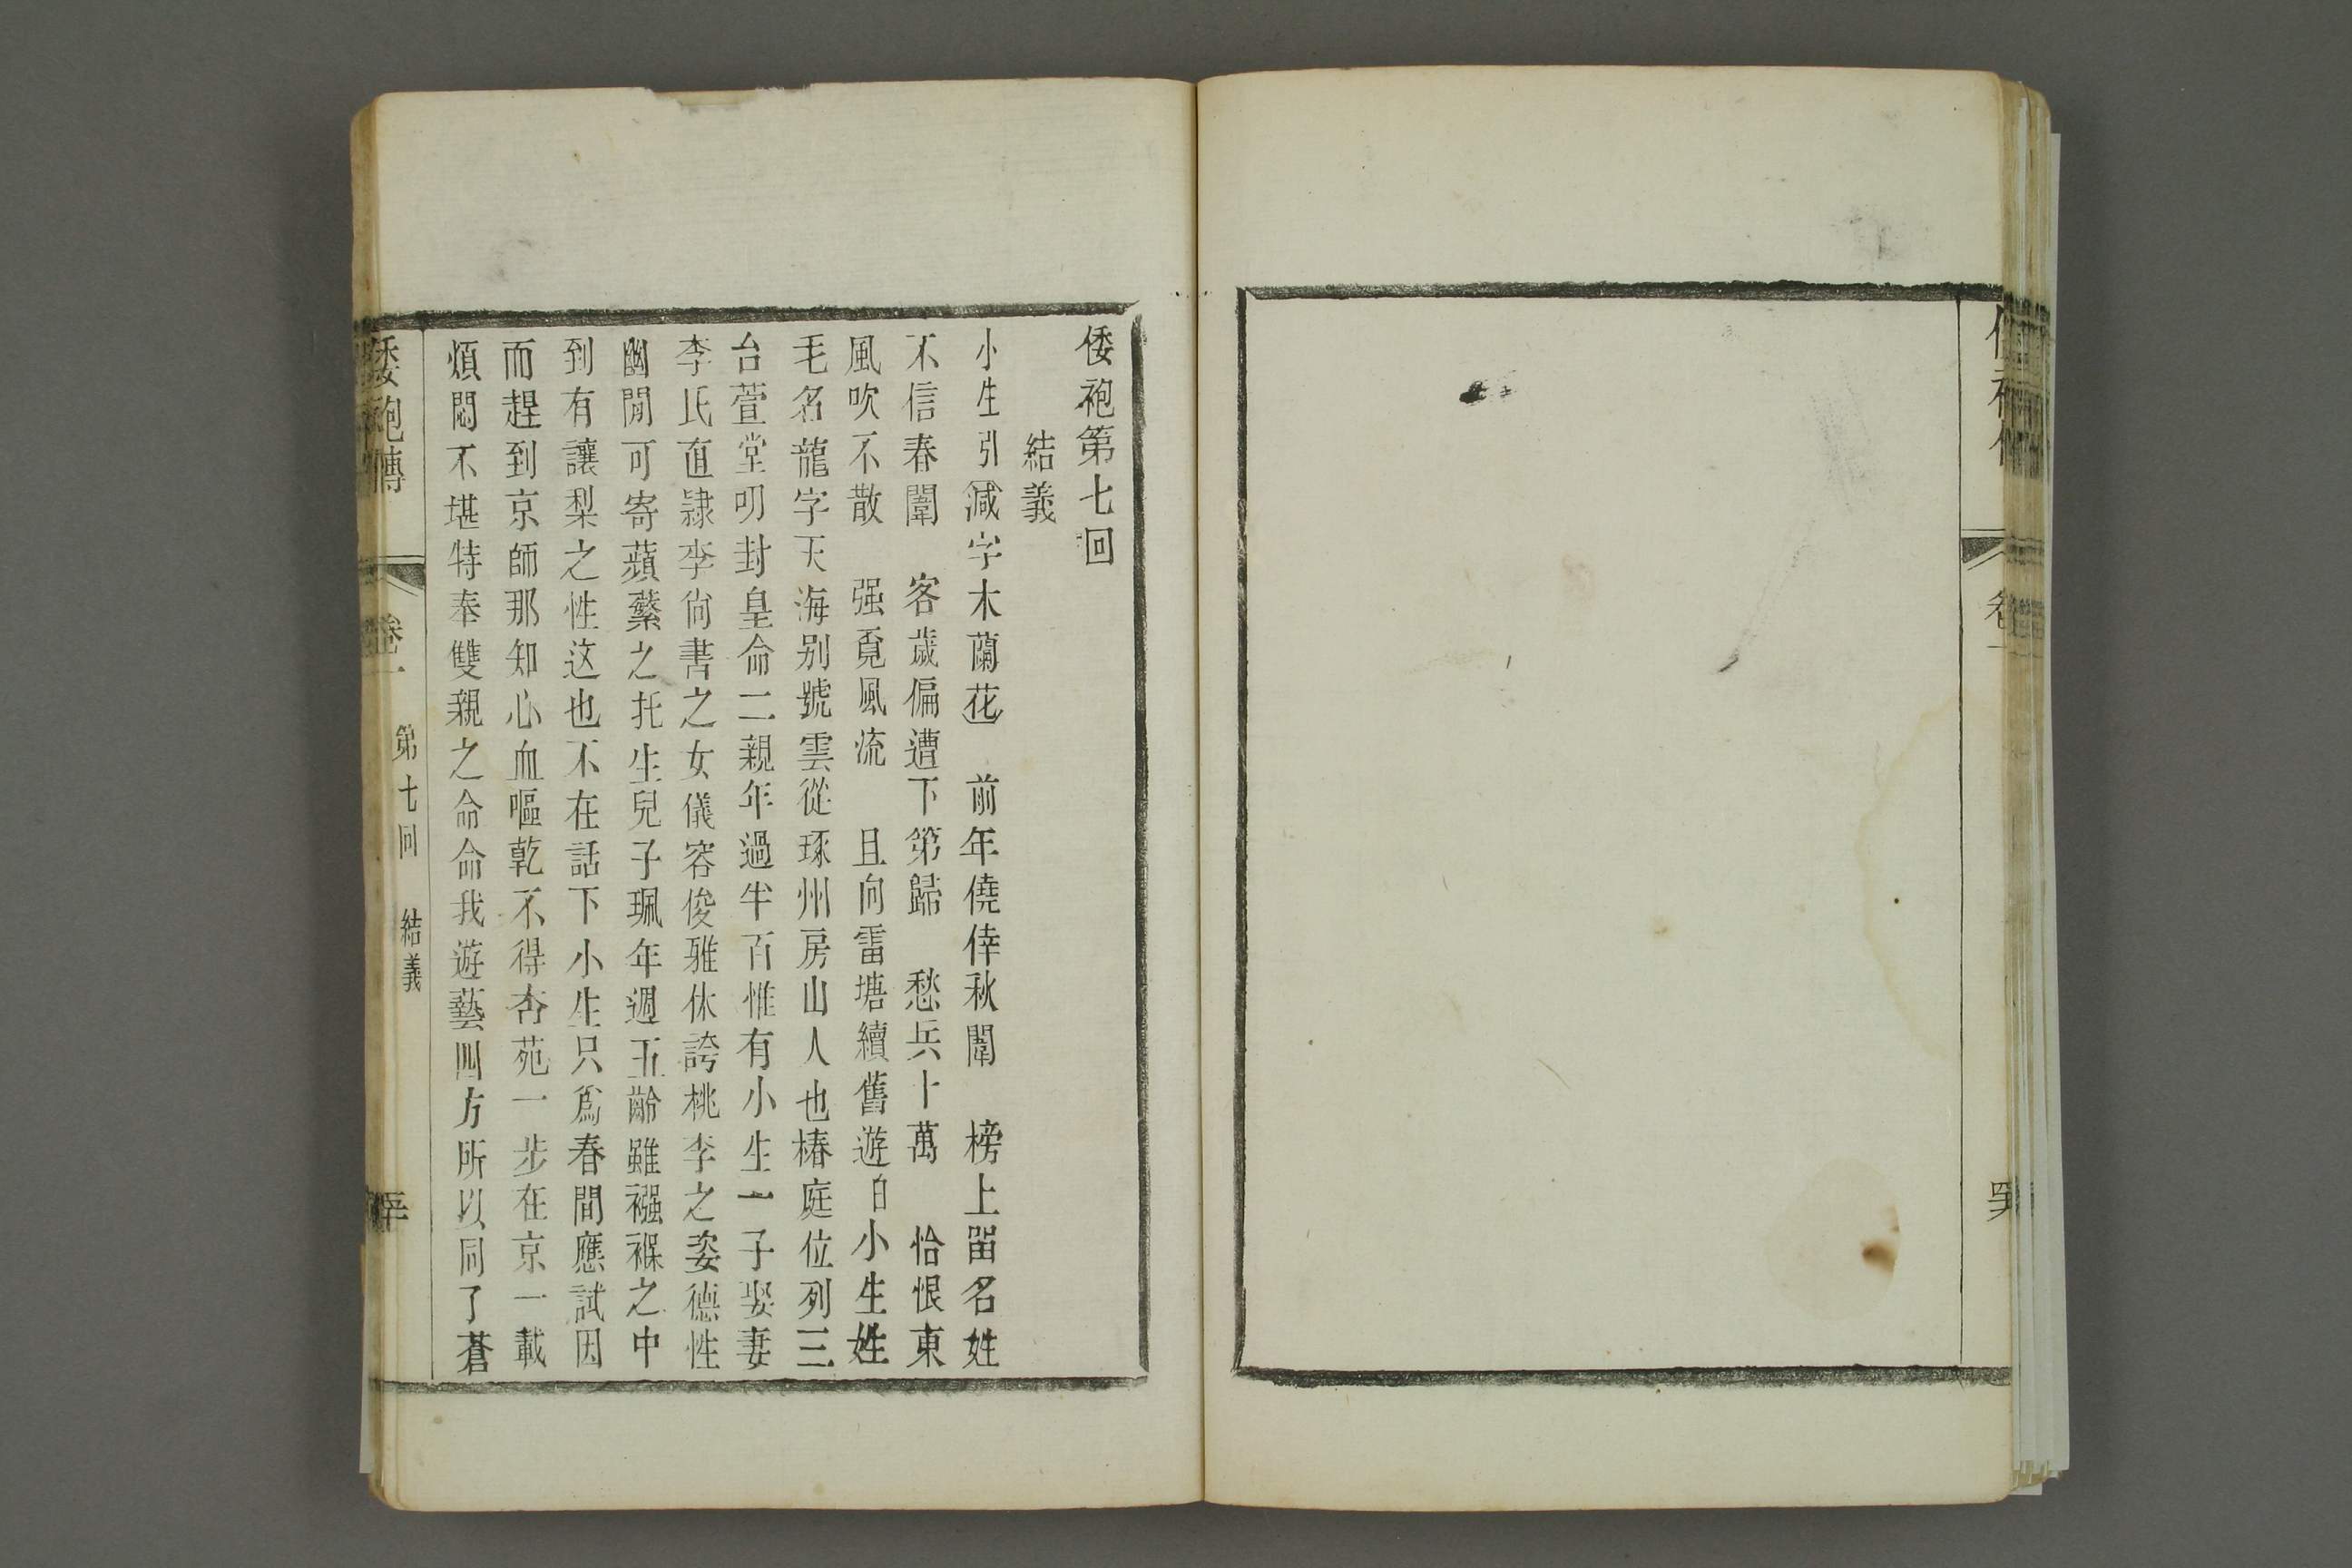 倭袍第七回
結義
小生引（減字木蘭花）　前年僥倖秋闈　榜上留名姓
不信春闈　客歲偏遭下第歸　愁兵十萬　恰恨東
風吹不散　强覔風流　且向雷塘續舊遊白小生姓
毛名龍字天海别號雲從琢州房山人也椿庭位列三
台萱堂叨封皇命二親年過半百惟有小生一子娶妻
李氏直隷李尙書之女儀容俊雅休誇桃李之姿德性
幽閒可寄蘋蘩之托生兒子珮年週五齡雖襁褓之中
到有讓梨之性这也不在話下小生只爲春間應試因
而趕到京師那知心血嘔乾不得杏苑一步在京一載
煩悶不堪特奉雙親之命命我遊藝四方所以同了蒼
倭袍傳
卷一
第七回
結義
卷一